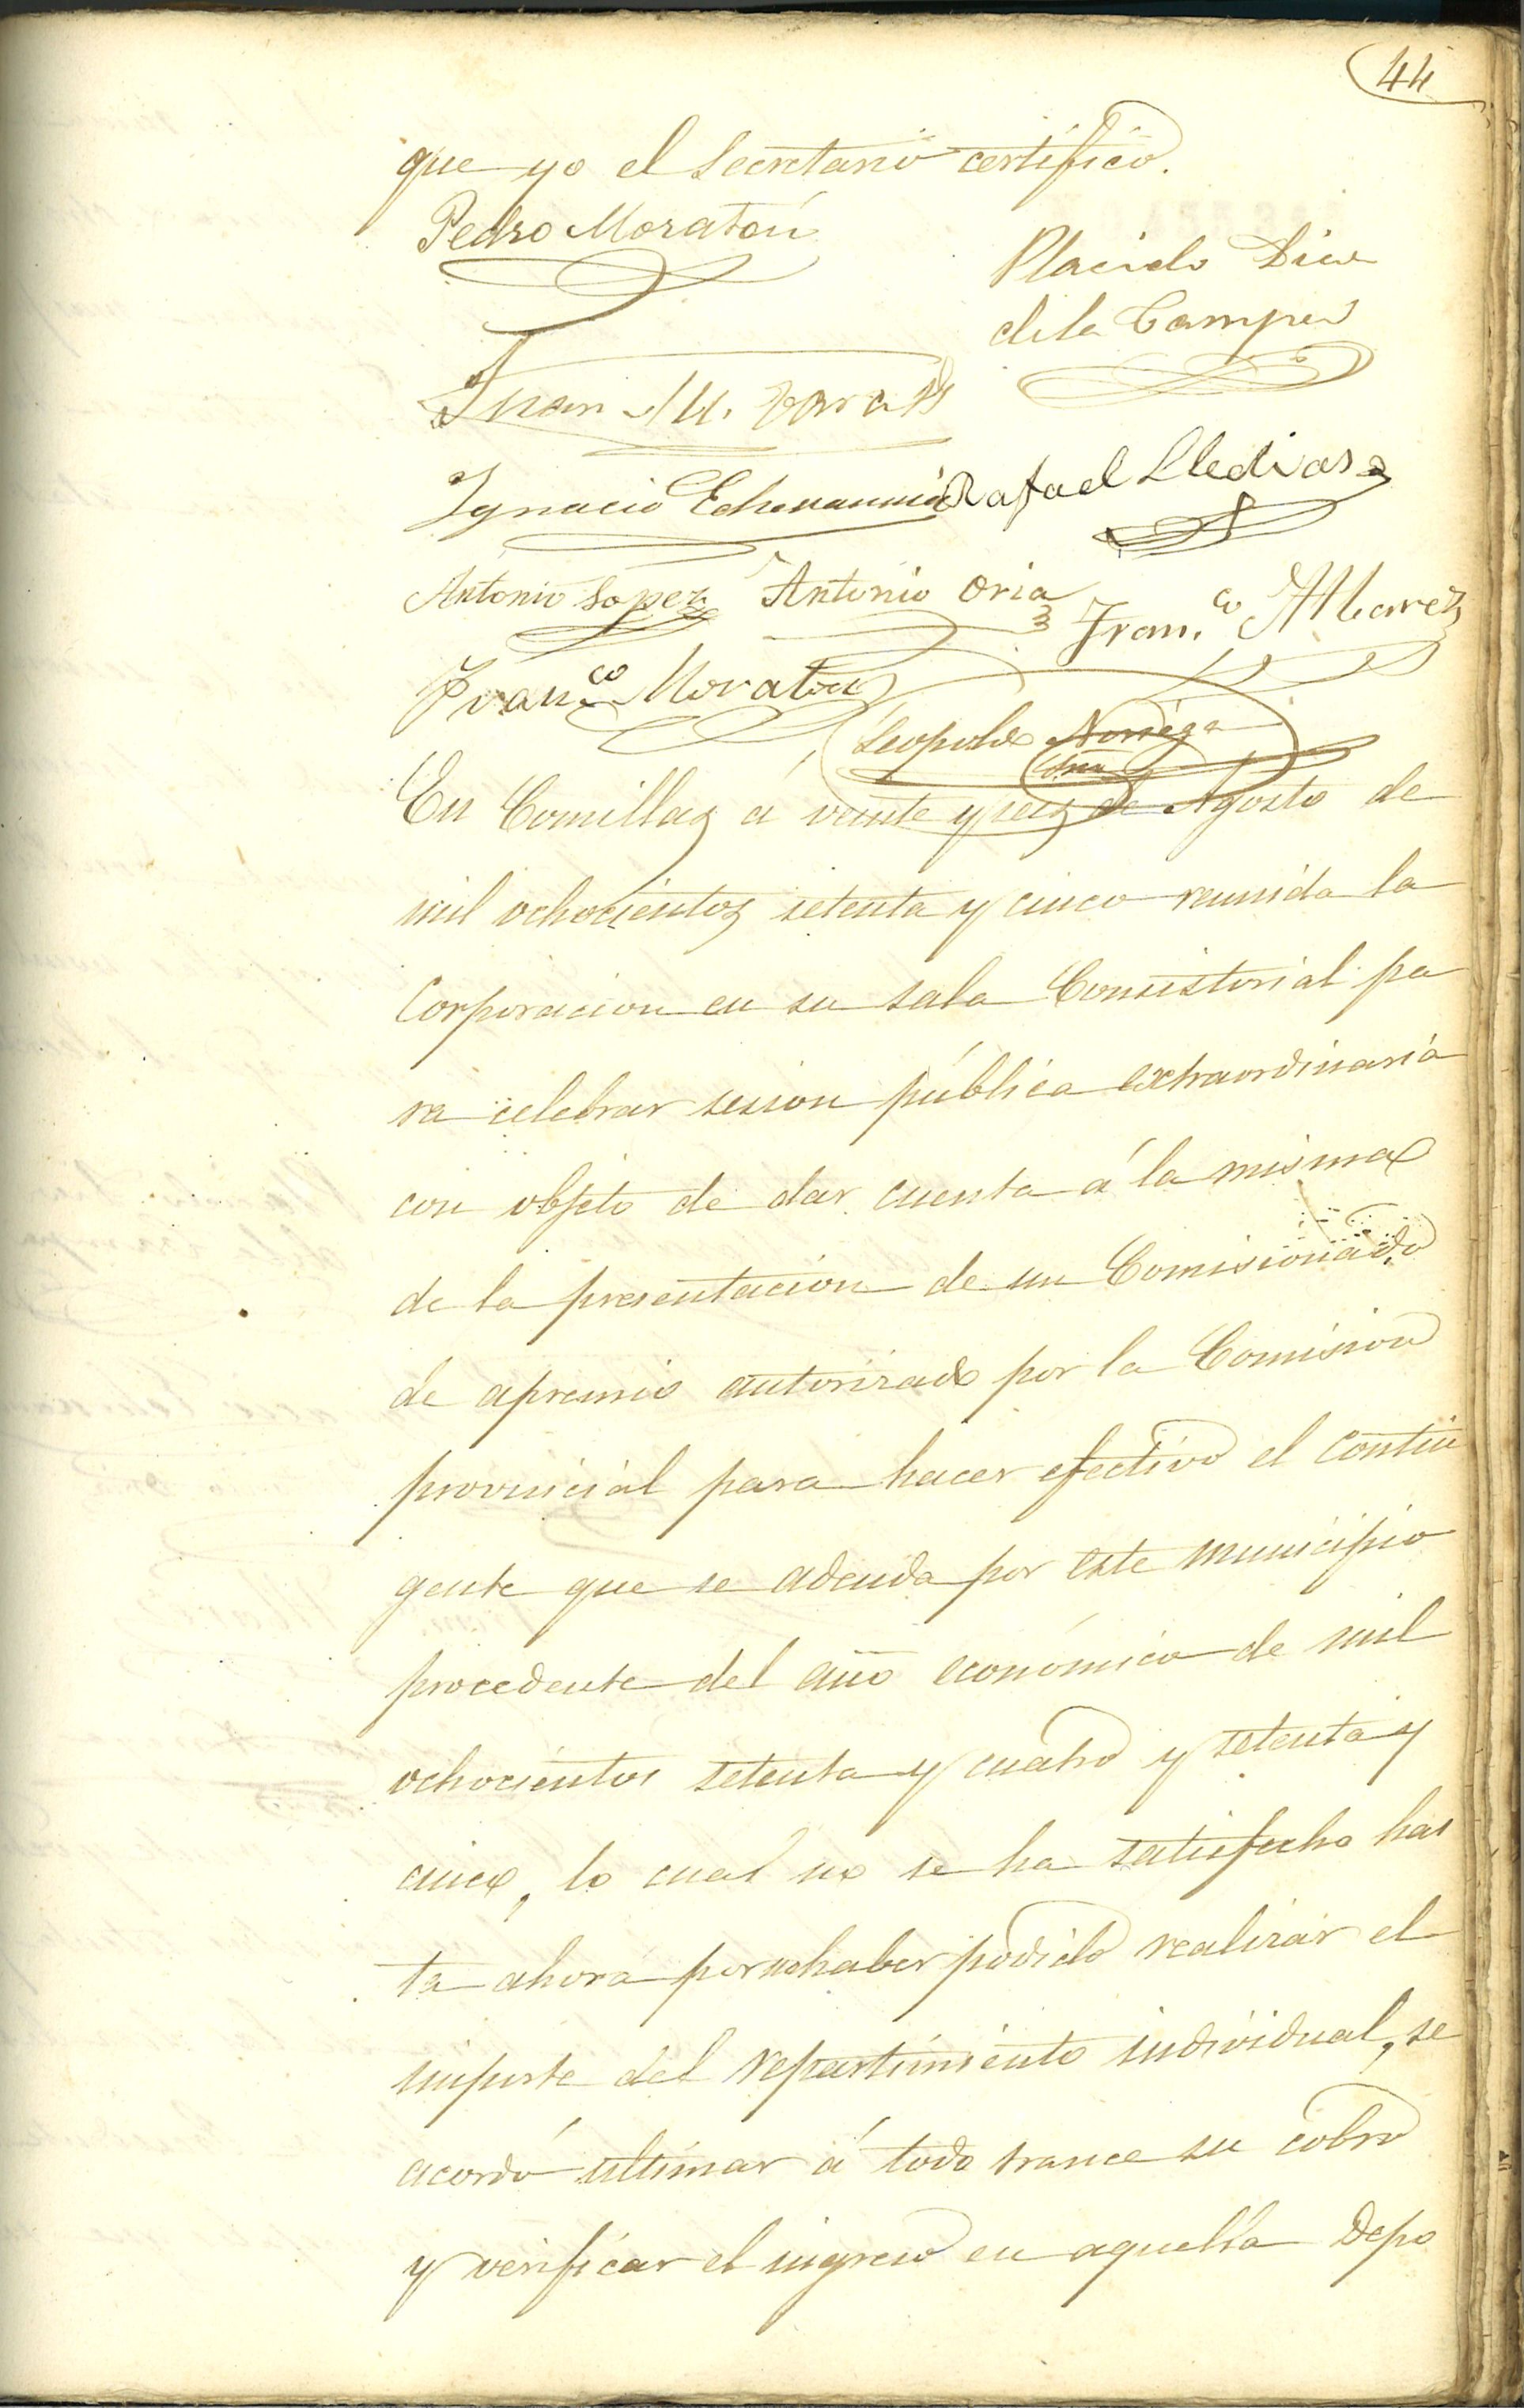 44
que yo el Secretario certifico.
Pedro Moratón
Placido Diaz
de la Campa
Juan M.
Ignacio Echevarria Rafael Lledias
Antonio Lopez Antonio Oria Fran.co Alvarez
Fran.co Moraton
Leopoldo Noriega
Srio
En Comillas á veinte y seis de Agosto de
mil ochocientos setenta y cinco reunida la
Corporacion en su sala Consistorial pa
ra celebrar sesion pública extraordinaria
con objeto de dar cuenta á la misma
de la presentacion de un Comisionado
de apremio autorizado por la Comision
provincial para hacer efectivo el contin
gente que se adeuda por este municipio
procedente del año económico de mil
ochocientos setenta y cuatro y setenta y
cinco, lo cual no se ha satisfecho has
ta ahora por no haber podido realizar el
importe del repartimiento individual, se
acordó ultimar á todo trance su cobro
y verificar el ingreso en aquella Depo